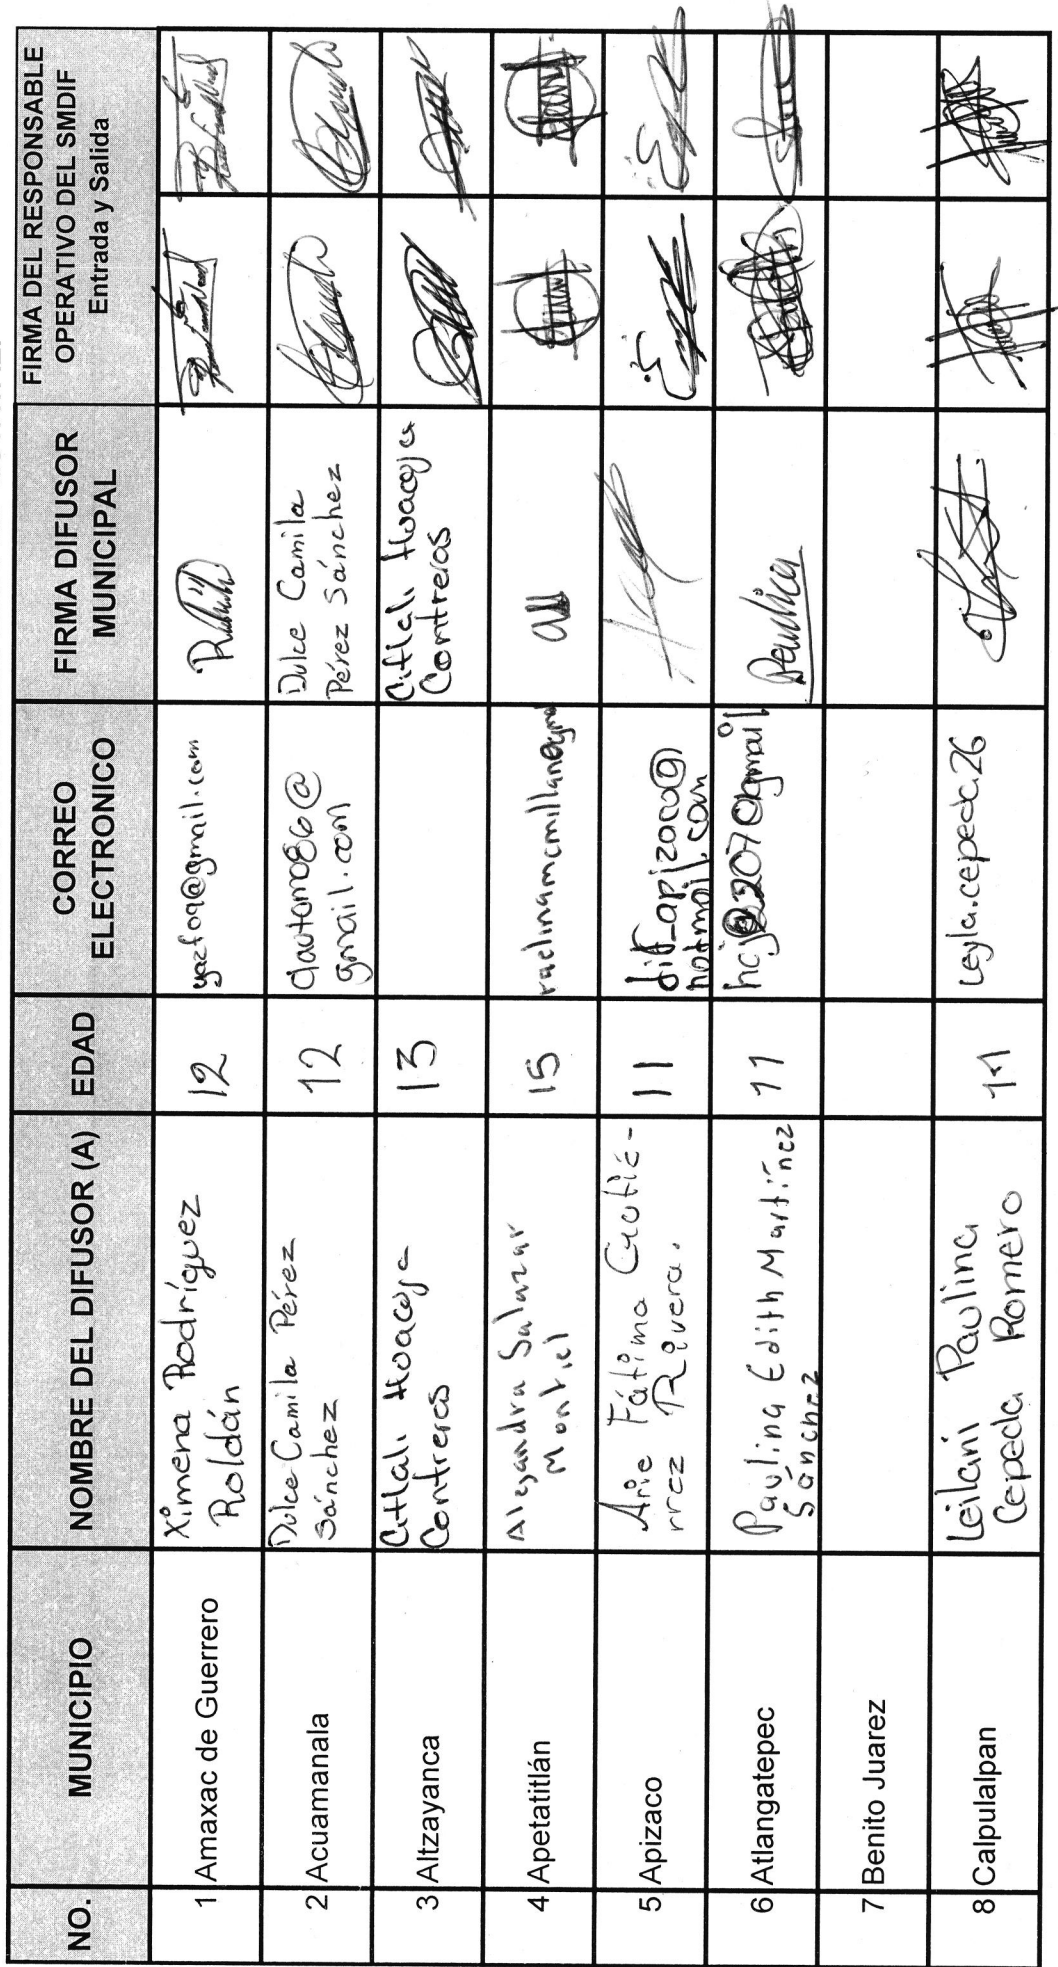 NO. MUNICIPIO NOMBRE DEL DIFUSOR (A) EDAD CORREO ELECTRONICO FIRMA DIFUSOR MUNICIPAL FIRMA DEL RESPONSABLE OPERATIVO DEL SMDIF Entrada y Salida
1 Amaxac de Guerrero
Ximena Rodríguez
Roldán
12
yazfoq@gmail.com
2 Acuamanala
Dulce Camila Pérez
Sánchez
12
gmail.com
Dulce Camila
Pérez Sánchez
3 Altzayanca
Citlali Huacoja
Contreras
13
Citlali Huacoja
Contreras
4 Apetatitlán
Alejandra Salazar
Montiel
15
5 Apizaco
Arie Fátima Gutié-
rrez Rivera.
11
dif_apizaco@
hotmail.com
6 Atlangatepec
Paulina Edith Martínez
Sánchez
11
7 Benito Juarez
8 Calpulalpan
Leilani Paulina
Cepeda Romero
11
Leyla.cepeda26